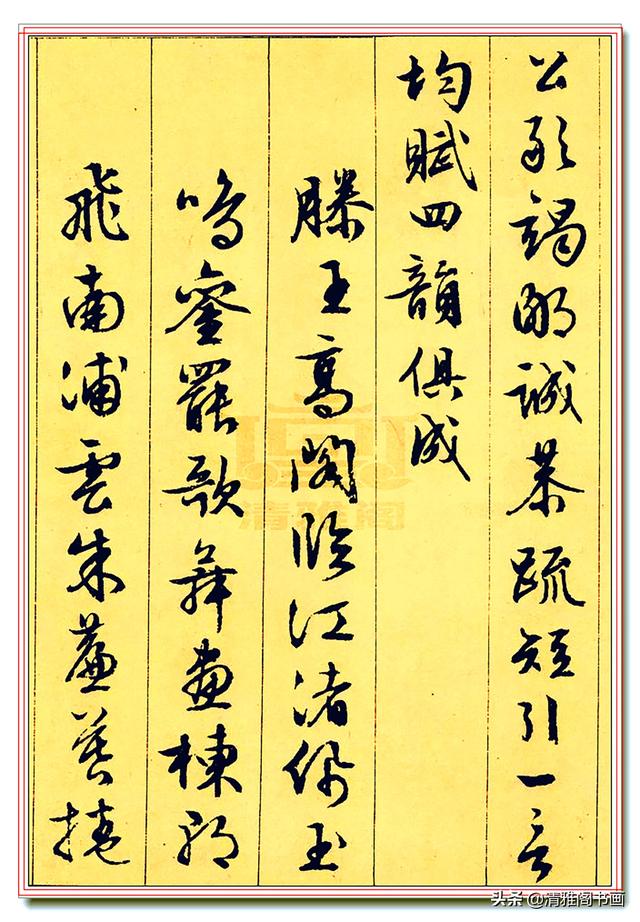 公敢竭鄙誠恭疏短引一言
均賦四韻俱成
滕王高閣臨江渚佩玉
鳴鑾罷歌舞畫棟朝
飛南浦雲朱簾暮捲
清雅阁
头条@清雅阁书画